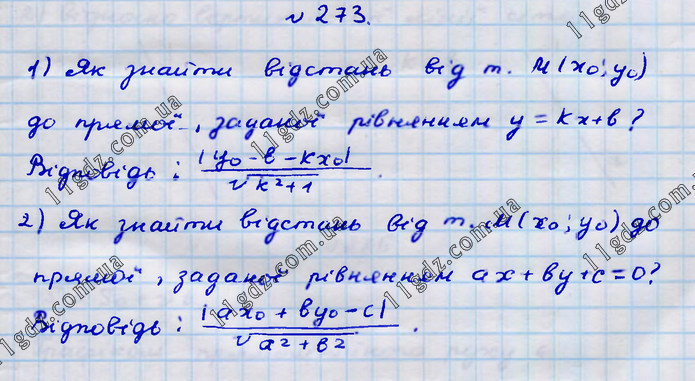 № 273.
1) Як знайти відстань від т. М(x₀; y₀)
до прямої, заданої рівнянням y = kx+b?
Відповідь: |y₀ - b - kx₀| / √k²+1.
2) Як знайти відстань від т. М(x₀; y₀) до
прямої, заданої рівнянням ax + by + c = 0?
Відповідь: |ax₀ + by₀ - c| / √a² + b².
11gdz.com.ua
11gdz.com.ua
11gdz.com.ua
11gdz.com.ua
11gdz.com.ua
11gdz.com.ua
11gdz.com.ua